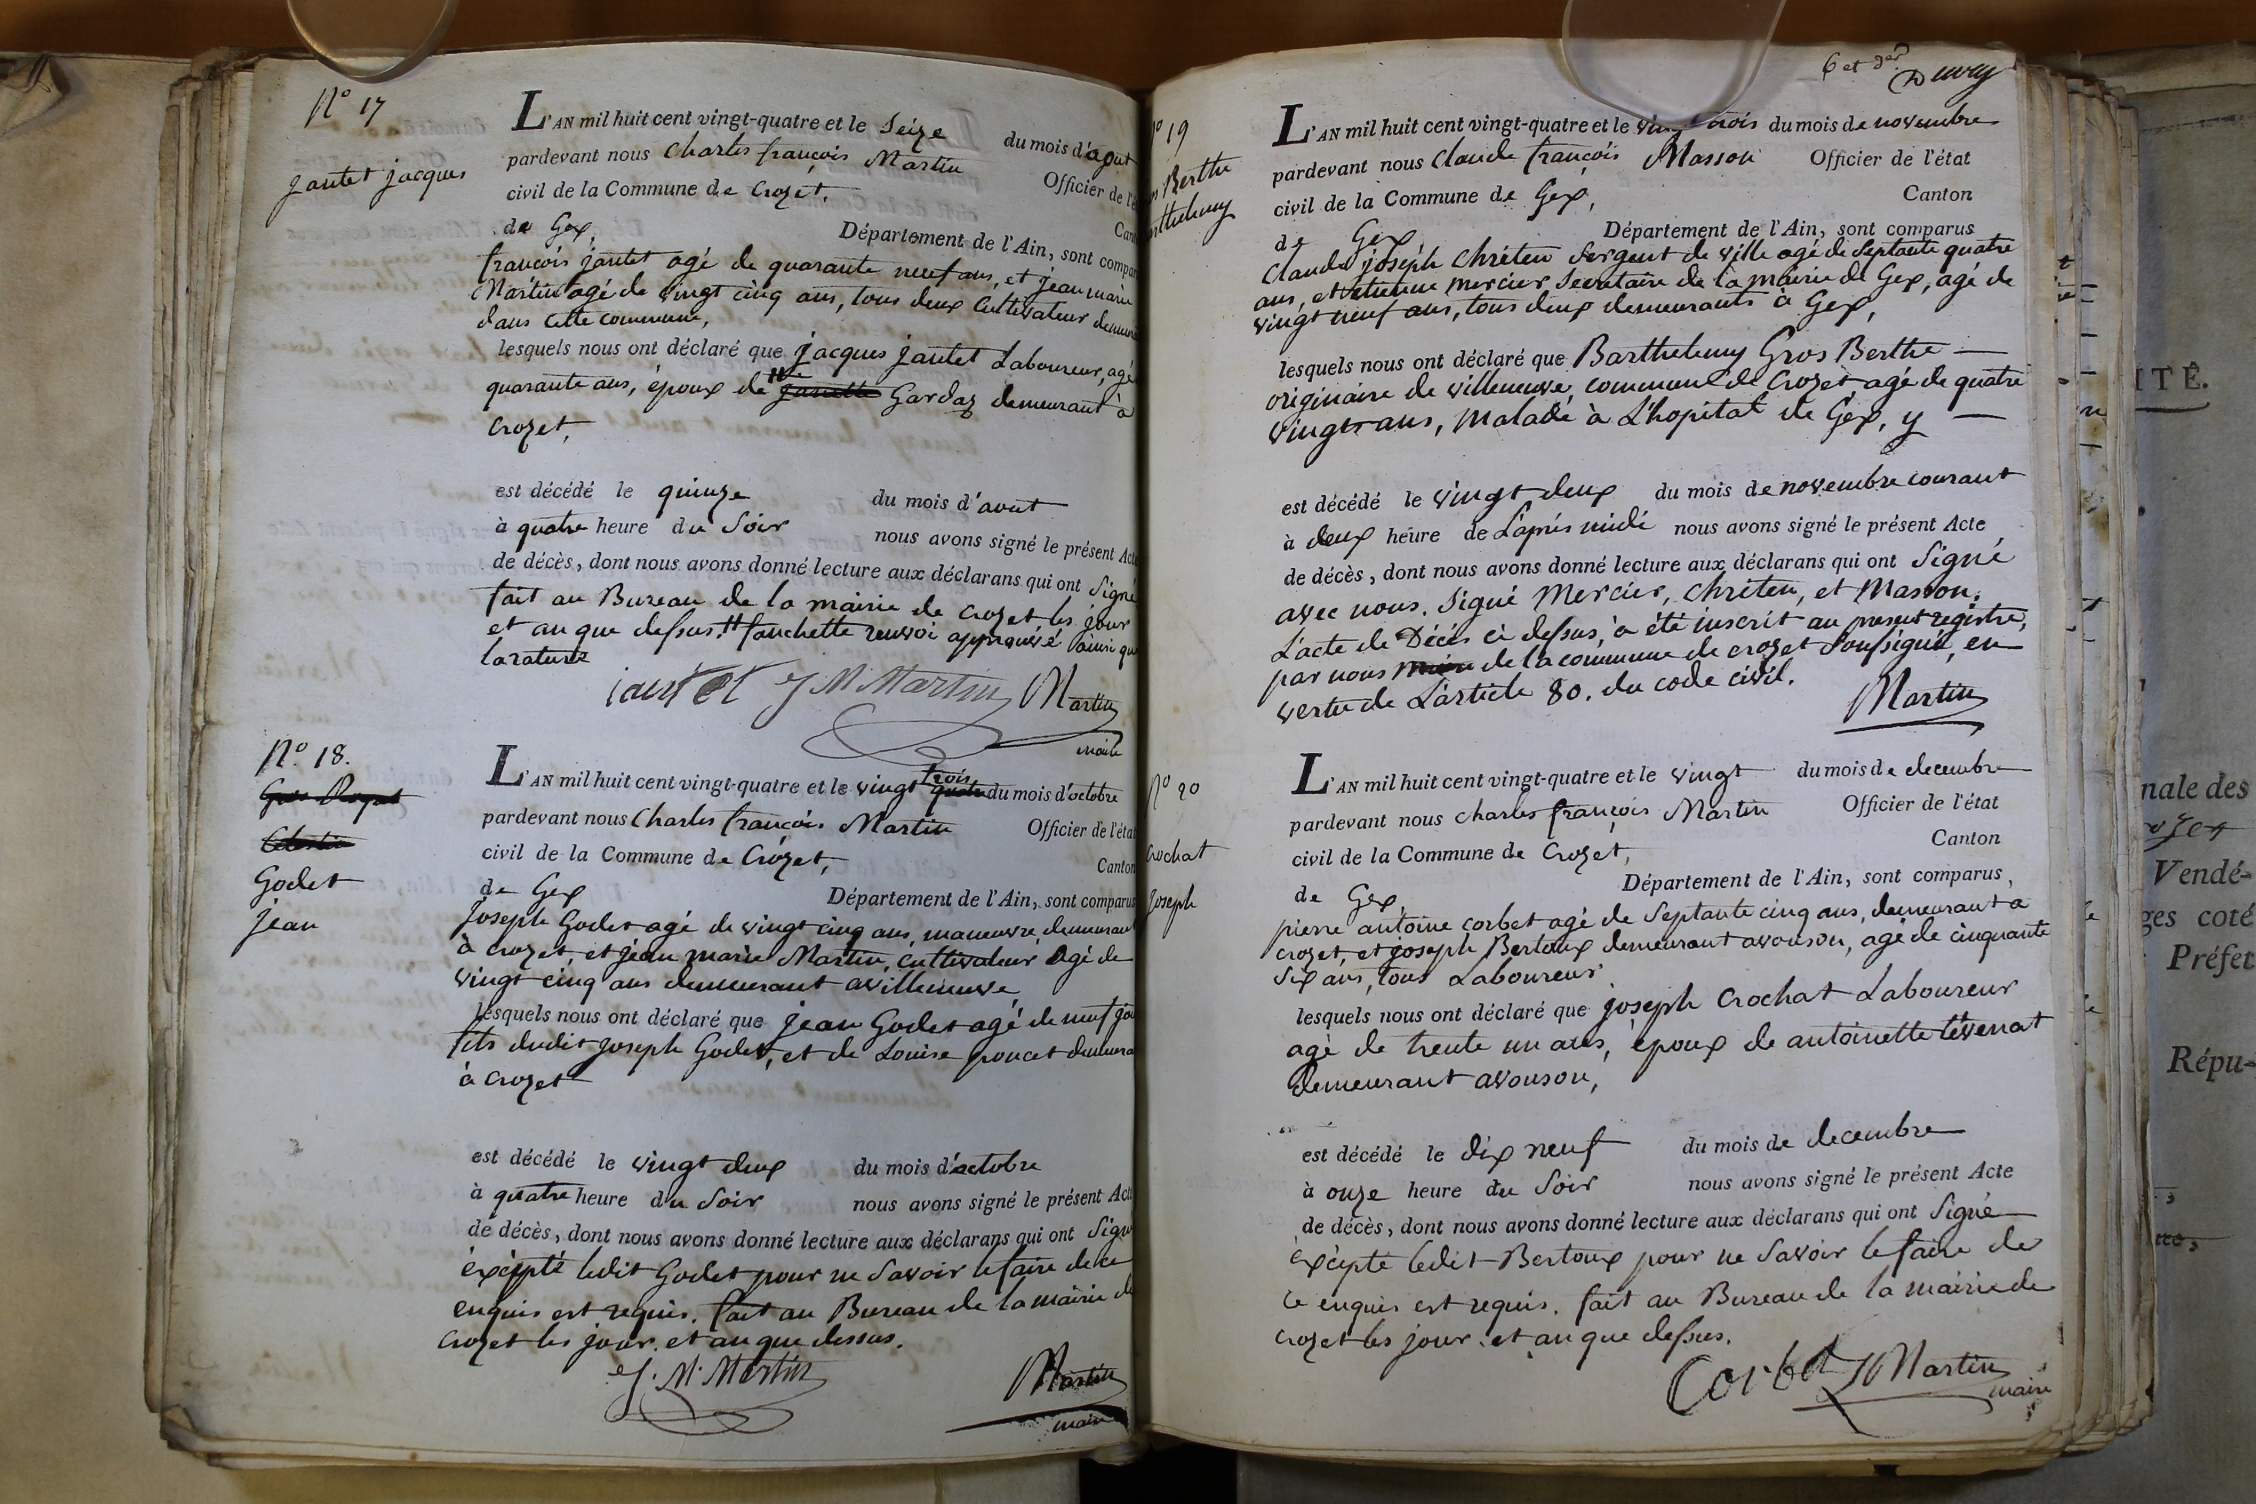 N° 17
Jantet jacques
L'AN mil huit cent vingt-quatre et le Seize du mois d'aout
pardevant nous Charles françois Martin Officier de l'é
civil de la Commune de Crozet, Cant
de Gex Département de l'Ain, sont compar
françois jantet agé de quarante neuf ans, et jean marie
Martin agé de vingt cinq ans, tous deux Cultivateur demeur
dans cette commune,
lesquels nous ont déclaré que jacques jantet Laboureur, agé
quarante ans, époux de # janette Gardaz demeurant à
Crozet,
est décédé le quinze du mois d'aout
à quatre heure du Soir nous avons signé le présent Acte
de décès, dont nous avons donné lecture aux déclarans qui ont Signé
fait au Bureau de la mairie de Crozet les jour
et an que dessus. # fanchette renvoi approuvé ainsi que
la rature
jantet J M Martin Martin
maire
N° 18.
Gros Royat
Celestin
Godet
jean
L'AN mil huit cent vingt-quatre et le vingt trois quatre du mois d'octobre
pardevant nous Charles françois Martin Officier de l'état
civil de la Commune de Crozet, Canton
de Gex Département de l'Ain, sont comparus
Joseph Godet agé de vingt cinq ans, maneuvre, demeurant
à Crozet, et jean marie Martin, cultivateur Agé de
vingt cinq ans demeurant a villeneuve
lesquels nous ont déclaré que jean Godet agé de neuf jou
fils dudit Joseph Godet, et de Louise poncet demeura
à Crozet
est décédé le vingt deux du mois d'octobre
à quatre heure du Soir nous avons signé le présent Acte
de décès, dont nous avons donné lecture aux déclarans qui ont Signé
éxcépté ledit Godet pour ne Savoir le faire de ce
enquis est requis. fait au Bureau de la mairie de
Crozet les jour et an que dessus.
J. M. Martin Martin
maire
6 et der
° 19
os Berthe
arthelemy
L'AN mil huit cent vingt-quatre et le vingt trois du mois de novembre
pardevant nous Claude françois Masson Officier de l'état
civil de la Commune de Gex, Canton
de Gex Département de l'Ain, sont comparus
Claude joseph Chréten Sergent de ville agé de Septante quatre
ans, et etienne mercier, Secretaire de la mairie de Gex, agé de
vingt neuf ans, tous deux demeurants à Gex,
lesquels nous ont déclaré que Barthelemy Gros Berthe
originaire de villeneuve, commune de Crozet agé de quatre
vingts ans, malade à L'hopital de Gex, y
est décédé le vingt deux du mois de novembre courant
à deux heure de L'aprés midi nous avons signé le présent Acte
de décès, dont nous avons donné lecture aux déclarans qui ont Signé
avec nous. Signé Mercier, Chréten, et Masson.
L'acte de Décés ci dessus, a été inscrit au present registre,
par nous maire de la commune de crozet Soussigné, en
vertu de L'article 80. du code civil.
Martin
N° 20
Crochat
Joseph
L'AN mil huit cent vingt-quatre et le vingt du mois de decembre
pardevant nous charles françois Martin Officier de l'état
civil de la Commune de Crozet, Canton
de Gex Département de l'Ain, sont comparus,
pierre antoine corbet agé de Septante cinq ans, demeurant a
crozet, et joseph Bertoux demeurant avouson, agé de cinquante
Six ans, tous Laboureur
lesquels nous ont déclaré que joseph Crochat Laboureur
agé de trente un ans, époux de antoinette tévenat
demeurant avouson,
est décédé le dix neuf du mois de decembre
à onze heure du Soir nous avons signé le présent Acte
de décès, dont nous avons donné lecture aux déclarans qui ont Signé
éxcépté ledit Bertoux pour ne Savoir le faire de
ce enquis est requis. fait au Bureau de la mairie de
crozet les jour et an que dessus.
Corbet Martin
maire
ITÉ.
nale des
Vendé-
ges coté
Préfet
Répu-